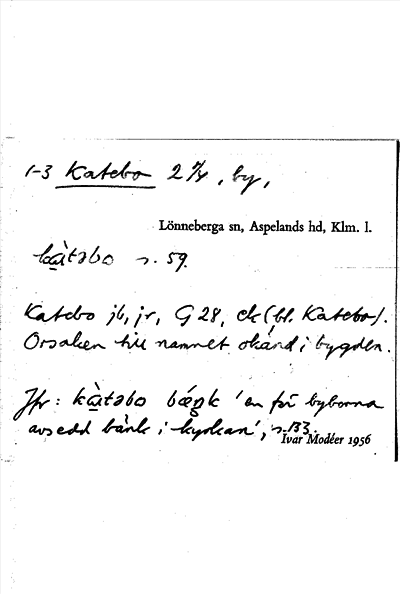 1-3 Katebo 2 7/4, by,
Lönneberga sn, Aspelands hd, Klm. l.
kàtəbo s. 59.
Katebo jb, jr, G 28, ek (bl. Katebo).
Orsaken till namnet okänd i bygden.
Jfr: kàtəbo bæŋk 'en för byborna
avsedd bänk i kyrkan', s. 133.
Ivar Modéer 1956